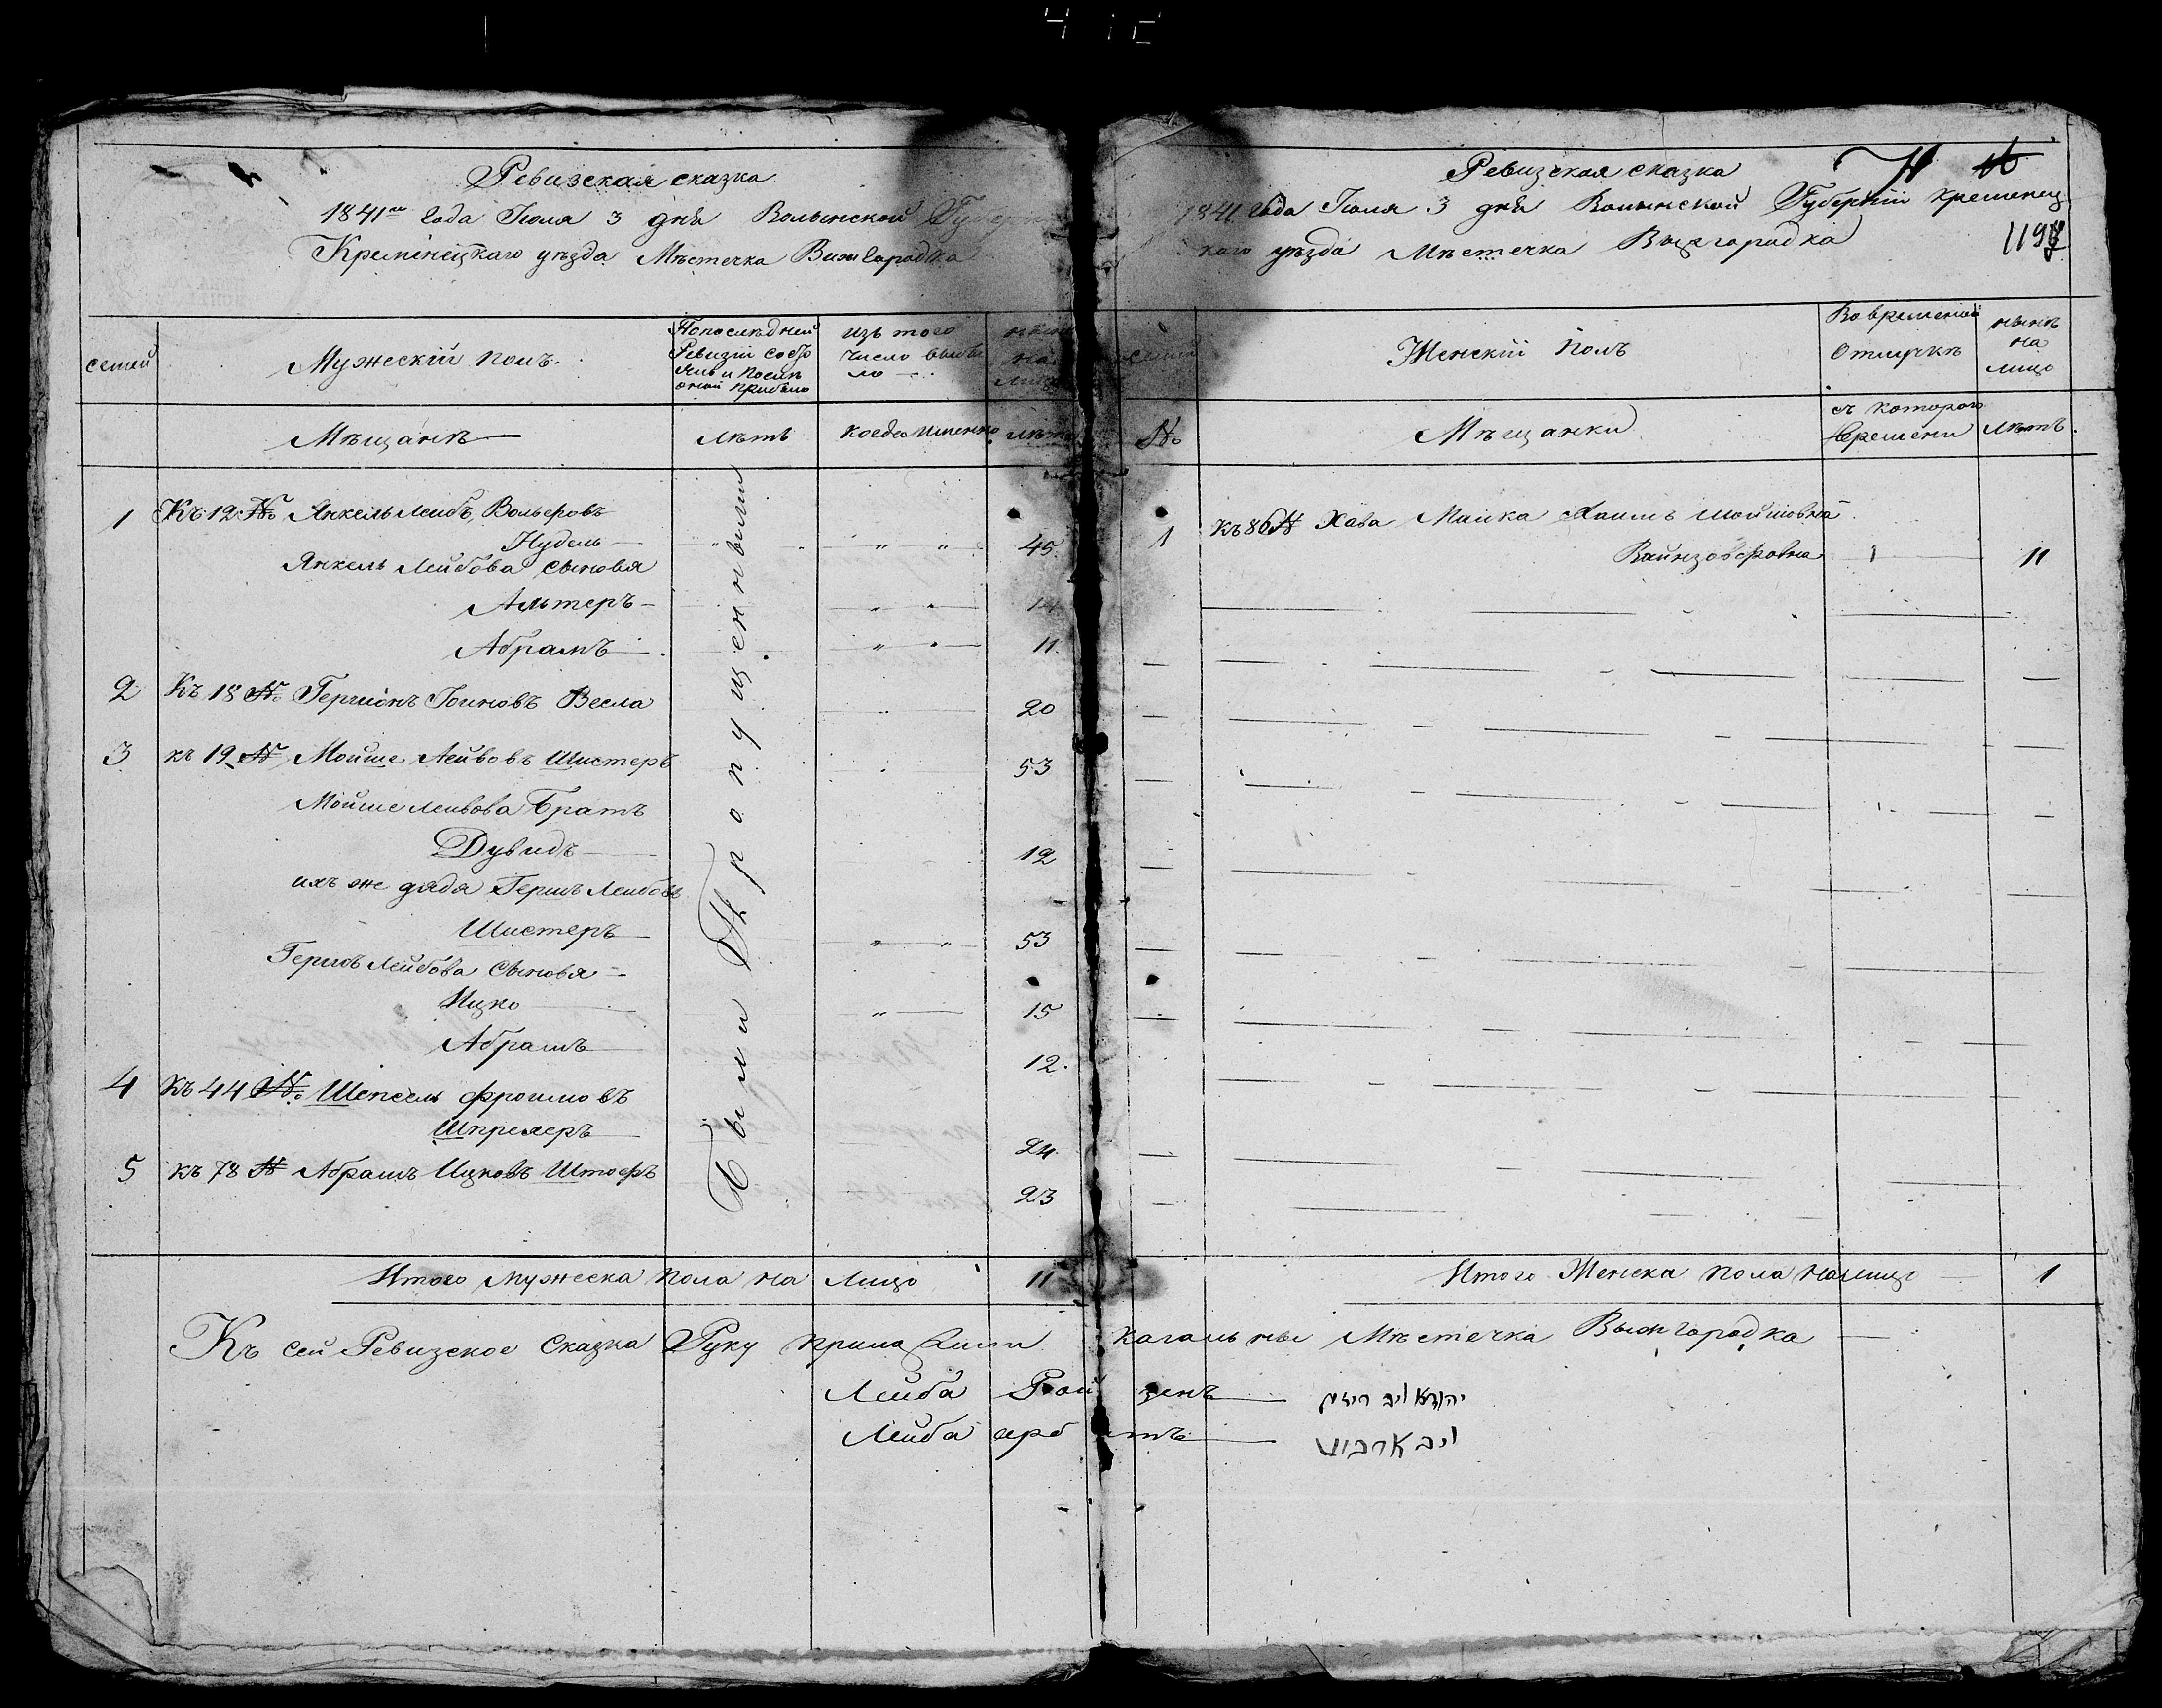 Ревизская сказка
1841го года Июля 3 дня Волынской Губерн
Кременецкаго уѣзда Мѣстечка Вижгородка
семей
Мужескій полъ.
Попослѣдней
Ревизіи состо
яло и послѣ
оной прибыло
изъ того
число выбы
ло
нынѣ
на
лицо
Мѣщанъ
лѣтъ
когда именно
лѣтъ
1 Къ 12 № Янкель Лейбъ Вольфовъ
Нудель 45.
Янкель Лейбова сыновья
Альтеръ 14
Абрамъ 11.
2 Къ 18 № Гершонъ Іоиновъ Весла 20
3 къ 19 № Мойше Лейвовъ Шистеръ 53
Мойше Лейвова Братъ
Дувидъ 12
ихъ же дядя Гершъ Лейбовъ
Шистеръ 53
Гершъ Лейбова сыновья
Ицко 15
Абрамъ 12.
4 Къ 44 № Шепсель Фроимовъ
Шпрехеръ 24
5 къ 78 № Абрамъ Ицковъ Штофъ 23
Были Пропущенными
Итого мужеска пола на Лицо 11
Ревизская сказка
1841 года Июля 3 дня Волынской Губерніи Кременец
каго уѣзда Мѣстечка Вышгородка
119
семей
Женскій полъ
Во временной
отлучкѣ
нынѣ
на
лицо
№
Мѣщанки
съ котораго
времени
лѣтъ
1 къ 86 № Хава Малка Хаимъ Мойшовна
Вайнзоферовна 11
Итого Женска пола налицо 1
Къ сей Ревизское Сказка Руку приложили кагальны Мѣстечка Вышгородка
Лейба Ройзенъ
Лейба